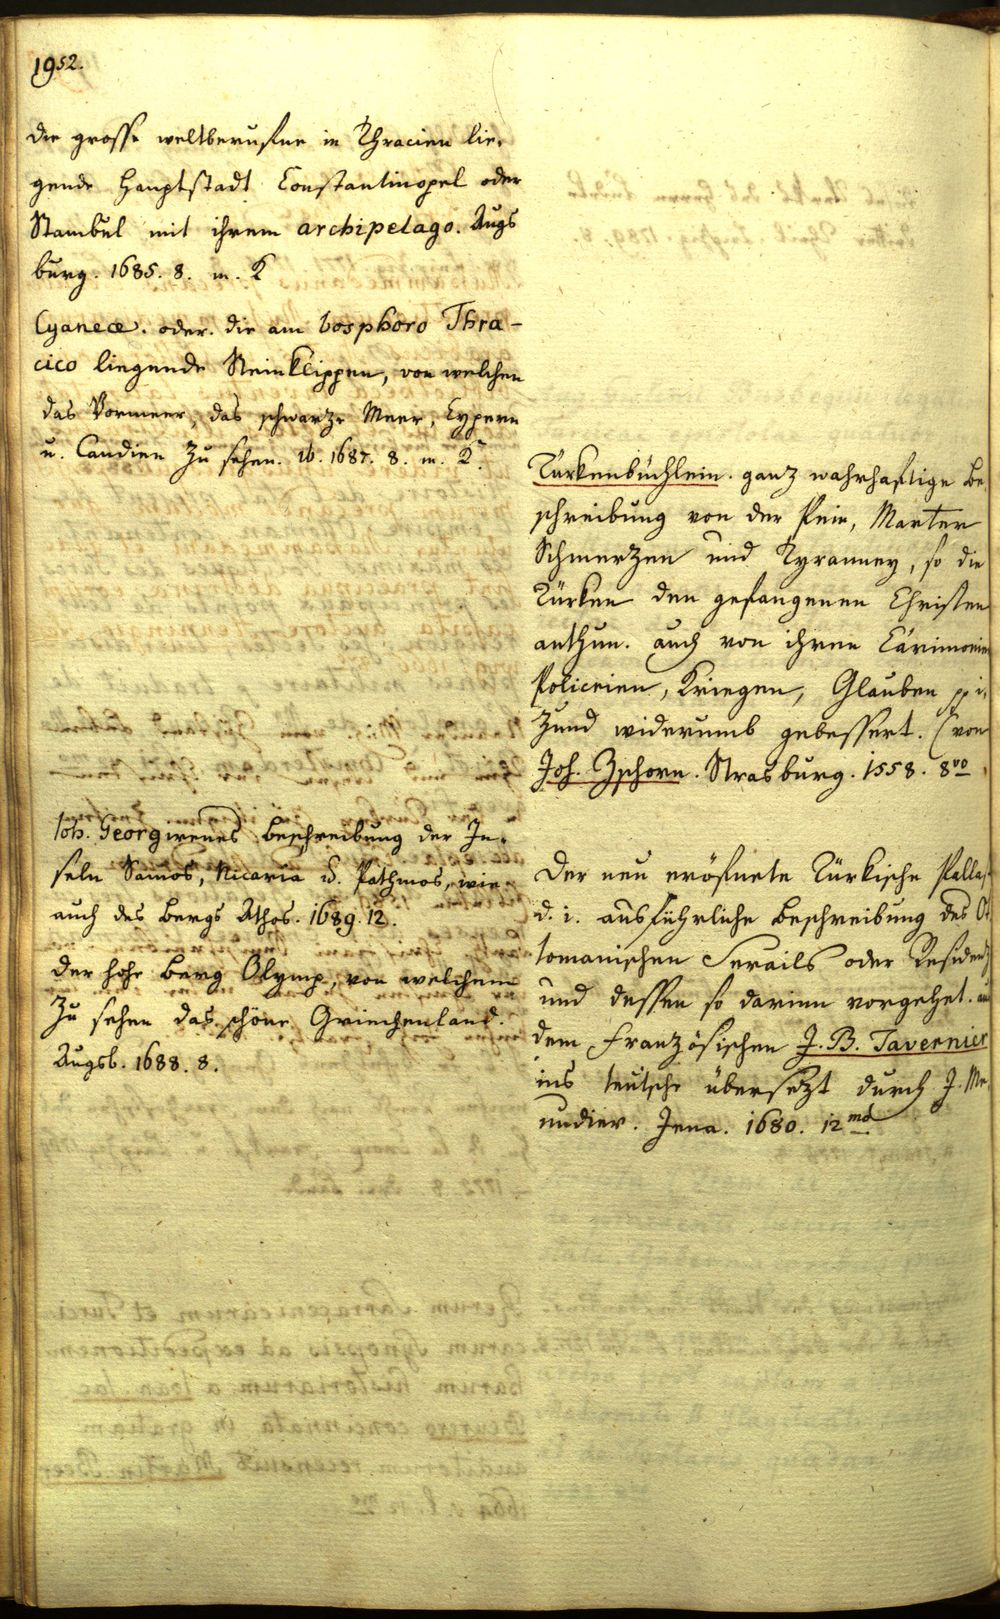 1952.
die grosse weltberuffne in Thracien lie-
gende Hauptstadt Constantinopel oder
Stambul mit ihrem archipelago. Augs
burg. 1685. 8. m. K
Cyaneæ. oder. die am bosphoro Thra-
cico liegende Steinklippen, von welchen
das Vormeer, das schwartze Meer, Cypern
u. Candien zu sehen. ib. 1687. 8. m. K.
Joh. Georgirenes Beschreibung der In-
seln Samos, Nicaria u. Pathmos, wie
auch des bergs Athos. 1689. 12.
der hohe berg Olymp, von welchem
zu sehen das schöne Griechenland.
Augsb. 1688. 8.
Türkenbüchlein. ganz wahrhaftige be-
schreibung von der Pein, Marter
Schmerzen und Tyranney, so die
Türken den gefangenen Christen
anthun. auch von ihren Cärimonien
Policeien, Kriegen, Glauben
zund widerumb gebessert. (von
Joh. Zschorn. Strasburg. 1558. 8vo
Der neu eröfnete Türkische Pallas
d. i. ausführliche beschreibung des Ot
tomanischen Serails oder Residenz
und dessen so darinn vorgehet. aus
dem Französischen J. B. Tavernier
ins teutsche übersezt durch J. Me
nudier. Jena. 1680. 12md